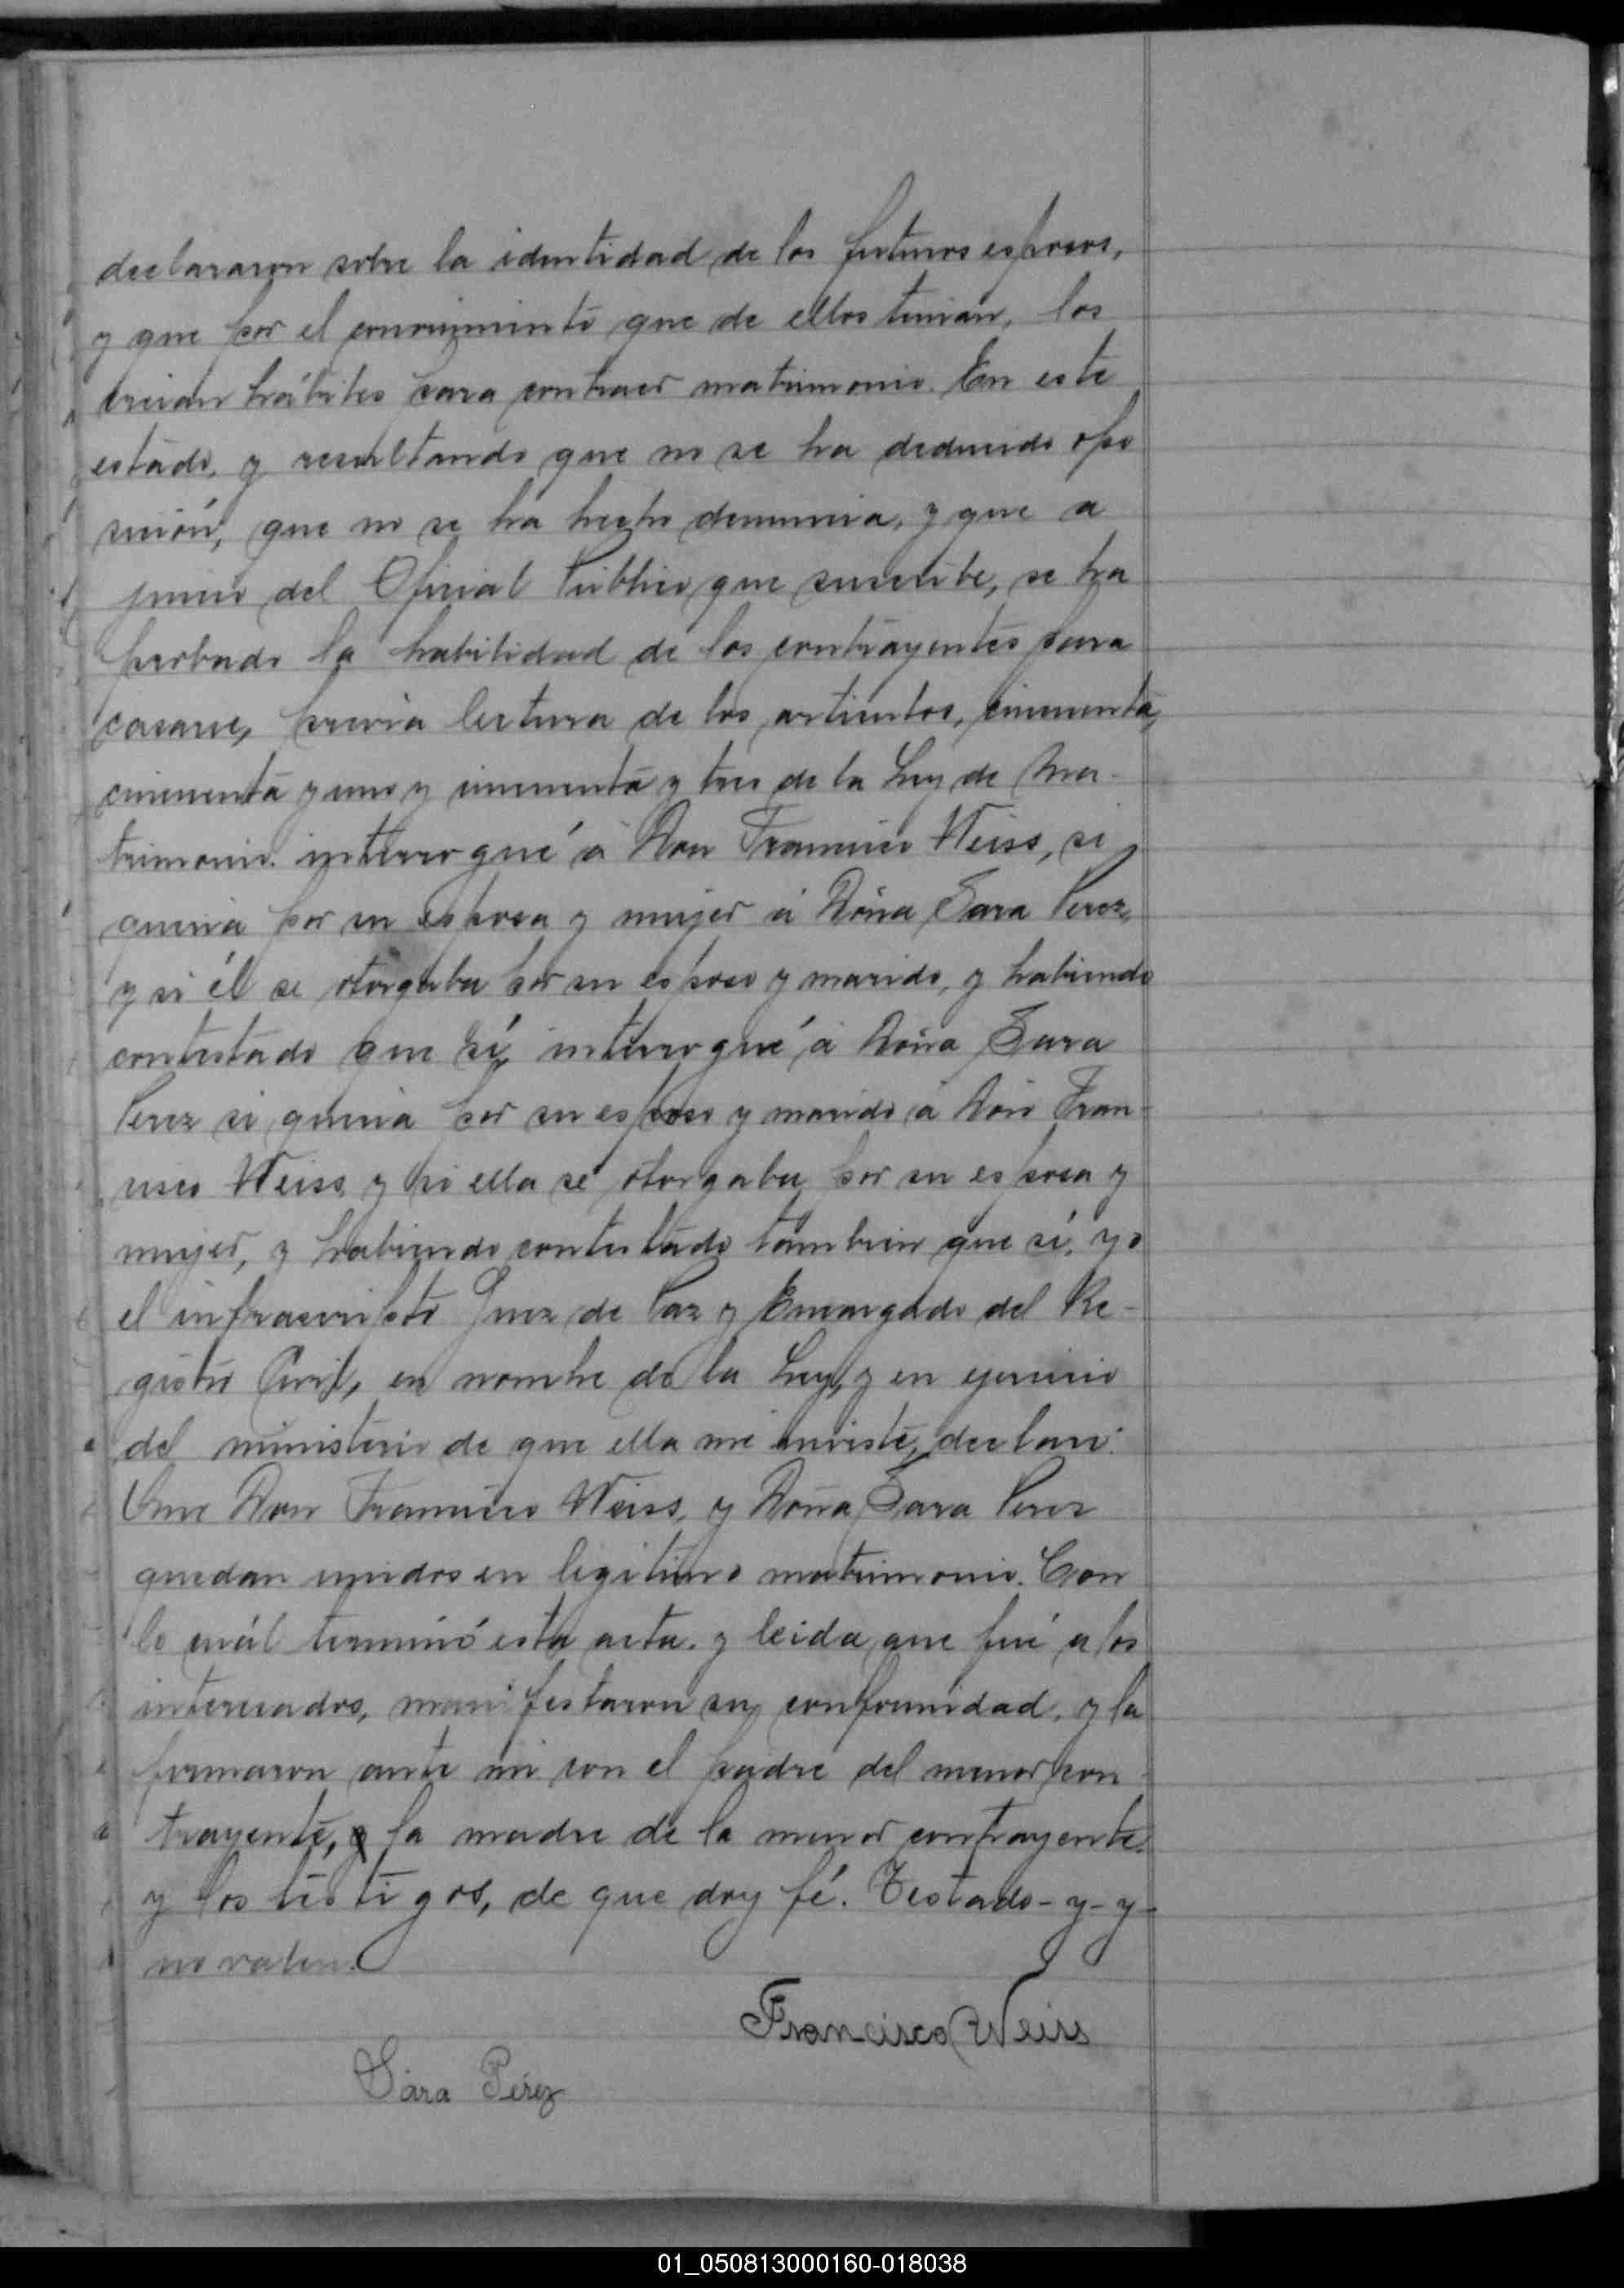 declararon sobre la identidad de los futuros esposos,
y que por el conocimiento que de ellos tenian, los
creian hábiles para contraer matrimonio. En este
estado, y resultando que no se ha deducido opo
sición, que no se ha hecho denuncia, y que a
juicio del Oficial Público que suscribe, se ha
probado la habilidad de los contrayentes para
casarse, previa lectura de los articulos, cincuenta,
cincuenta y uno y cincuenta y tres de la Ley de Ma-
trimonio. interrogué á Don Francisco Weiss, si
queria por su esposa y mujer á Doña Sara Perez,
y si él se otorgaba por su esposo y marido, y habiendo
contestado que sí, interrogué á Doña Sara
Perez si queria por su esposo y marido á Don Fran-
cisco Weiss y si ella se otorgaba por su esposa y
mujer, y habiendo contestado tambien que sí, yo
el infrascripto Juez de Paz y Encargado del Re-
gistro Civil, en nombre de la Ley, y en ejercicio
del ministerio de que ella me inviste, declaro:
Que Don Francisco Weiss, y Doña Sara Perez
quedan unidos en legitimo matrimonio. Con
lo cuál terminó esta acta. y leida que fué a los
interesados, manifestaron su conformidad, y la
firmaron ante mi con el padre del menor con-
trayente, y la madre de la menor contrayente.
y los testigos, de que doy fé. Testado - y - y -
no valen.
Francisco Weiss
Sara Pérez
01_050813000160-018038